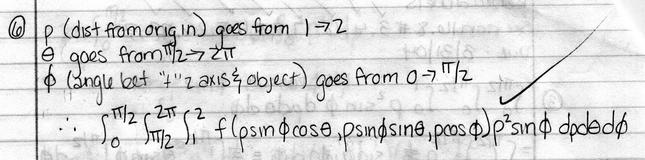 ⑥ ρ (dist from origin) goes from 1→2
θ goes from π/2→2π
φ (angle bet "+" z axis & object) goes from 0→π/2
∴ ∫₀^π/2 ∫π/2^2π ∫₁² f(ρsinφcosθ, ρsinφsinθ, ρcosφ)ρ²sinφ dρdθdφ